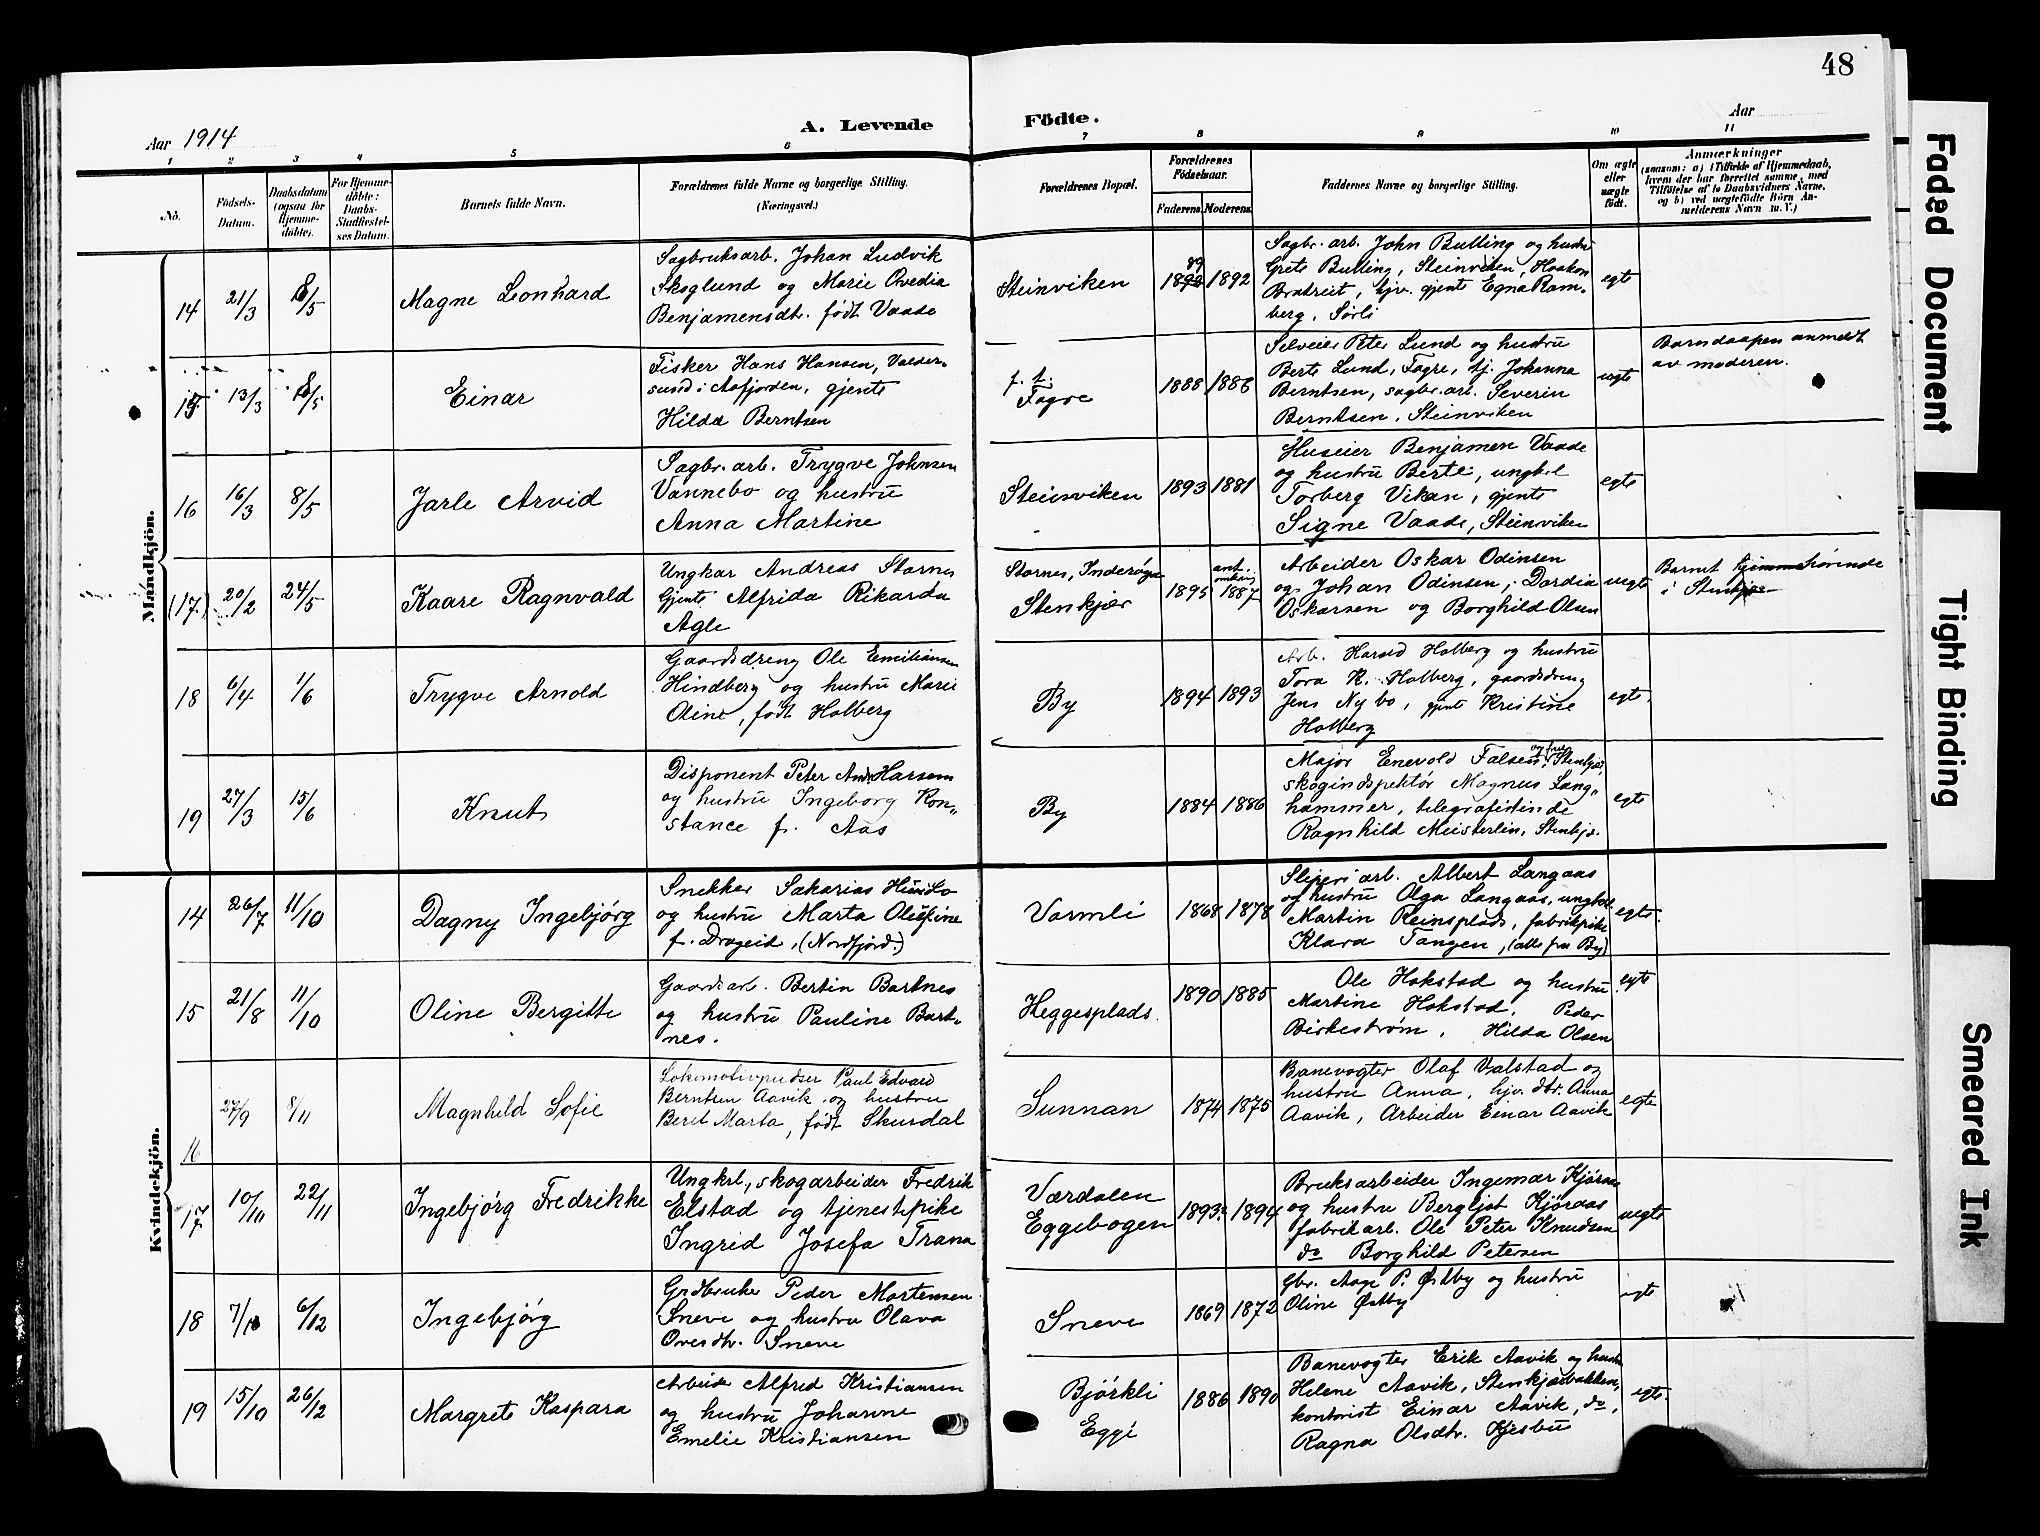 48
Aar 1914
A. Levende
Födte.
Aar
1 2 3 4 5 6 7 8 9 10 11
No.
Födsels-Datum.
Daabsdatum (ogsaa for Hjemme-döbte).
For Hjemme-döbte: Daabs-Stadfæstel-ses Datum.
Barnets fulde Navn.
Forældrenes fulde Navne og borgerlige Stilling.
(Næringsvei.)
Forældrenes Bopæl.
Forældrenes Födselsaar.
Faderens. Moderens.
Faddernes Navne og borgerlige Stilling.
Om ægte eller uægte födt.
Anmærkninger
(saasom: a) i Tilfælde af Hjemmedaab,
hvem der har forrettet samme, med
Tilföielse af to Daabsvidners Navne,
og b) ved uægtefödte Börn An-
melderens Navn m. V.)
Mandkjön.
14 21/3 8/5
Magne Leonhard
Sagbruksarb. Johan Ludvik
Skoglund og Marie Ovedia
Benjamensdtr. født Vaade
Steinviken
89
1892 1892
Sagbr. arb. John Bulling og hustru
Grete Bulling, Steinviken, Haakon
Bratreit, hjv. gjente Egna Ram-
berg, Sørli
egte
15 13/3 8/5
Einar
Fisker Hans Hansen, Valder-
sund i Aafjorden, gjente
Hilda Berntsen
f. t.
Fagre
1888 1886
Selveier Peter Lund og hustru
Berte Lund, Fagre, tj. Johanna
Berntsen, sagbr. arb. Severin
Berntsen, Steinviken
uegte
Barndaapen anmeldt
av moderen.
16 16/3 8/5
Jarle Arvid
Sagbr. arb. Trygve Johnsen
Vannebo og hustru
Anna Martine
Steinviken
1893 1881
Huseier Benjamen Vaade
og hustru Berte, ungkrl
Torberg Vikan, gjente
Signe Vaade, Steinviken
egte
(17) 20/2 24/5
Kaare Ragnvald
Ungkar Andreas Stornes
Gjente Alfrida Rikarda
Agle
Stornes, Inderøyen
Stenkjær
1895 1887
Arbeider Oskar Odinsen
og Johan Odinsen, Dordia
Oskarsen og Borghild Olsen
uegte
Barnet hjemmehørende
i Stenkjær
18 6/4 1/6
Trygve Arnold
Gaardsdreng Ole Emiliansen
Hindberg og hustru Marie
Oline, født Holberg
By
1894 1893
Arb. Harald Holberg og hustru
Tora K. Holberg, gaardsdreng
Jens Nybo, gjente Kristine
Holberg
egte
19 27/3 15/6
Knut
Disponent Peter Andr. Harsem
og hustru Ingeborg Kon-
stance f. Aas
By
1884 1886
Major Enevold Falsen og frue, Stenkjær,
skogindspektør Magnus Lang-
hammer, telegrafistinde
Ragnhild Meisterlin, Stenkjær
egte
Kvindekjön.
14 26/7 11/10
Dagny Ingebjørg
Snekker Sakarias
og hustru Marta Olufine
f. Drageid, (Nordfjord.)
Varmli
1868 1878
Sliperiarb. Albert Langaas
og hustru Olga Langaas, ungkrl.
Martin Reinsplads, fabrikpike
Klara Tangen, (alle fra By)
egte
15 21/8 11/10
Oline Bergitte
Gaardsarb. Bertin Bartnes
og hustru Pauline Bart-
nes.
Heggesplads
1890 1885
Ole Hokstad og hustru
Martine Hokstad, Peder
Birkestrøm, Hilda Olsen
egte
16 27/9 8/11
Magnhild Sofie
Lokomotivpudser Paul Edvard
Berntsen Aavik og hustru
Berit Marta, født Skurdal
Sunnan
1874 1875
Banevogter Olaf Valstad og
hustru Anna, hjv. dtr. Anna
Aavik, Arbeider Einar Aavik
egte
17 10/10 22/11
Ingebjørg Fredrikke
Ungkrl., skogarbeider Fredrik
Elstad og tjenestepike
Ingrid Josefa Trana
Værdalen
Eggebogen
1893 1894
Bruksarbeider Ingemar Kjøraas
og hustru Bergljot Kjøraas
fabrikarb. Ole Peter Knudsen
do Borghild Petersen
uegte
18 7/10 6/12
Ingebjørg
Grdbruker Peder Mortensen
Sneve og hustru Olava
Ovesdtr. Sneve
Sneve
1869 1872
Gbr. Aage P. Østby og hustru
Oline Østby
egte
19 15/10 26/12
Margrete Kaspara
Arbeider Alfred Kristiansen
og hustru Johanne
Emelie Kristiansen
Bjørkli
Egge
1886 1890
Banevogter Erik Aavik og hustru
Helene Aavik, Stenkjærbakken,
kontorist Einar Aavik, do,
Ragna Olsdtr. Kjesbu
egte.
Faded Document
Tight Binding
Smeared Ink